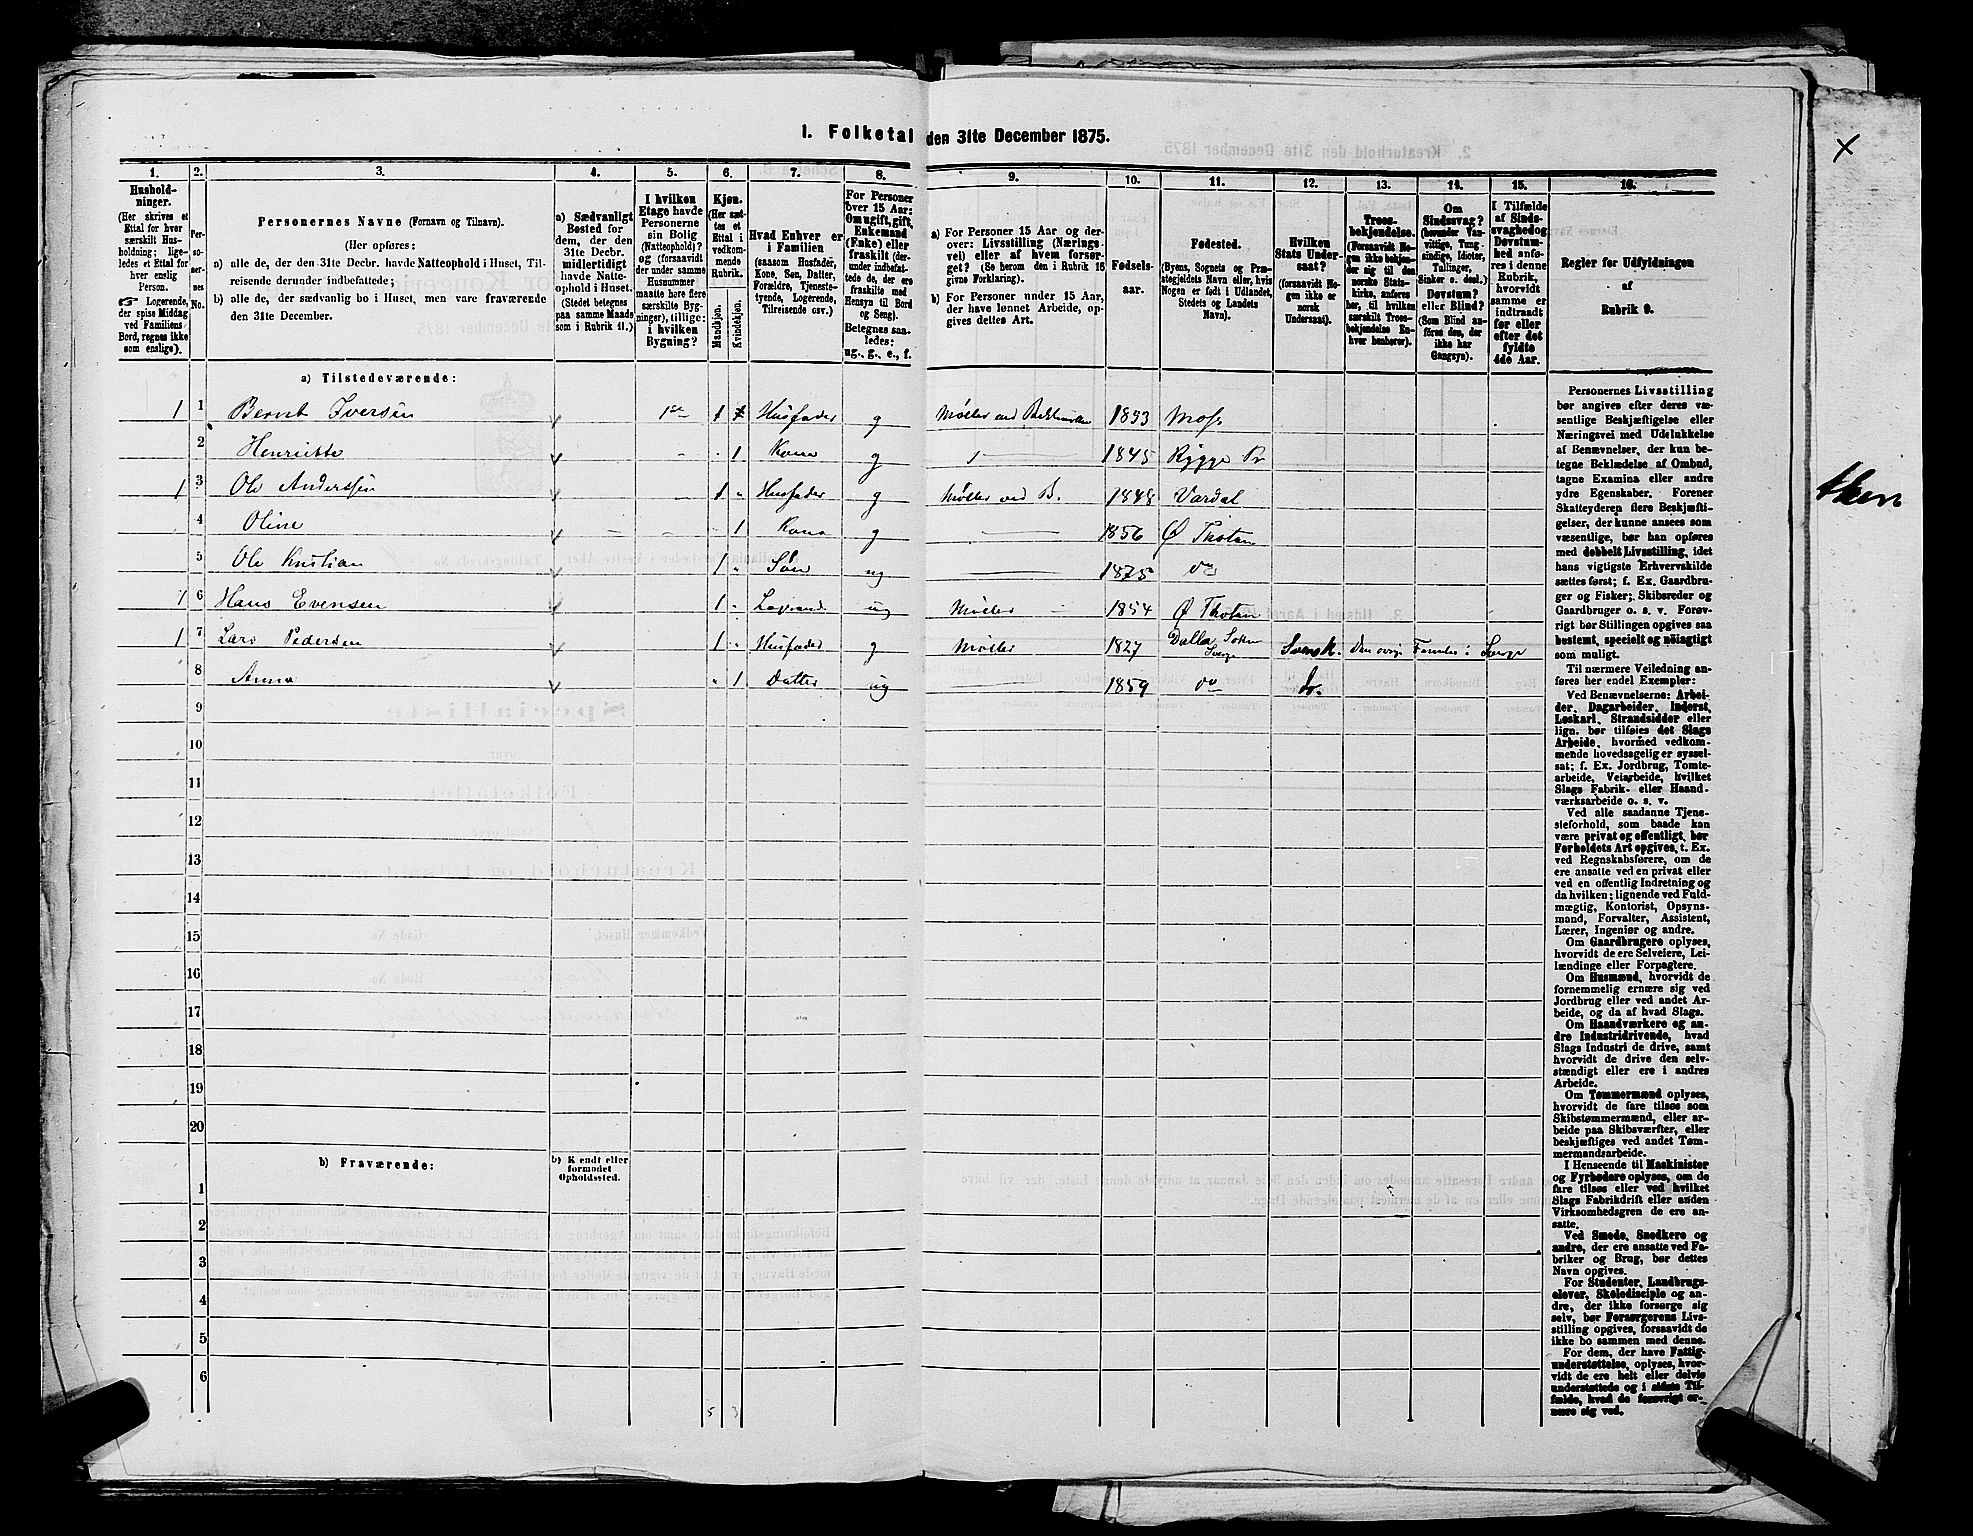 1. Folketal den 31te December 1875.
1. 2. 3. 4. 5. 6. 7. 8. 9. 10. 11. 12. 13. 14. 15. 16.
Hushold-
ninger.
(Her skrives et
Ettal for hver
særskilt Hus-
holdning; lige-
ledes et Ettal for
hver enslig
Person.
☞ Logerende,
der spise Middag
ved Familiens
Bord, regnes ikke
som enslige).
Per-
so-
ner-
nes-
No.
Personernes Navne (Fornavn og Tilnavn).
(Her opføres:
a) alle de, der den 31te Decbr. havde Natteophold i Huset, Til-
reisende derunder indbefattede;
b) alle de, der sædvanlig bo i Huset, men vare fraværende
den 31te December.
a) Sædvanligt
Bosted for
dem, der den
31te Decbr.
midlertidigt
havde Natte-
ophold i Huset.
(Stedet betegnes
paa samme Maade
som i Rubrik 11.)
I hvilken
Etage havde
Personerne
sin Bolig
(Natteophold)?
og (forsaavidt
der under samme
Husnummer
maatte høre flere
særskilte Byg-
ninger), tillige:
i hvilken
Bygning?
Kjøn.
(Her sæt-
tes et
Ettal i
vedkom-
mende
Rubrik.
Mandkjøn.
Kvindekjøn.
Hvad Enhver er
i Familien
(saasom Husfader,
Kone, Søn, Datter,
Forældre, Tjeneste-
tyende, Logerende,
Tilreisende osv.)
For Personer
over 15 Aar:
Om ugift, gift,
Enkemand
(Enke) eller
fraskilt (der-
under indbefat-
tede de, der ere
fraskilte med
Hensyn til Bord
og Seng).
Betegnes saa-
ledes:
ug., g., e., f.
a) For Personer 15 Aar og der-
over: Livsstilling (Nærings-
vei) eller af hvem forsør-
get? (Se herom den i Rubrik 16
givne Forklaring).
b) For Personer under 15 Aar,
der have lønnet Arbeide, op-
gives dettes Art.
Fødsels-
aar.
Fødested.
(Byens, Sognets og Præ-
stegjeldets Navn eller, hvis
Nogen er født i Udlandet,
Stedets og Landets
Navn).
Hvilken
Stats Under-
saat?
(forsaavidt No-
gen ikke er
norsk
Undersaat).
Troes-
bekjendelse.
(Forsaavidt No-
gen ikke bekjen-
der sig til den
norske Stats-
kirke, anføres
her, til hvilken
særskilt Troes-
bekjendelse En-
hver henhører).
Om
Sindssvag?
(herunder Van-
vittige, Tung-
sindige, Idioter,
Tullinger,
Sinker o. desl.)
Døvstum?
eller Blind?
(Som Blind an-
føres den, der
ikke har
Gangsyn).
I Tilfælde
af Sinds-
svaghed og
Døvstum-
hed anfø-
res i denne
Rubrik,
hvorvidt
samme er
indtraadt
før eller
efter det
fyldte
4de Aar.
Regler for Udfyldningen
af
Rubrik 9.
a) Tilstedeværende:
1 1 Bernt Iversen 1ste 1 Husfader g Møller ved 1833 Moss
2 Henriette 1 Kone g 1845 Rygge Pr
1 3 Ole Anderssen 1 Husfader g Møller ved B. 1848 Vardal
4 Oline 1 Kone g 1856 Ø Thoten
5 Ole Kristian 1 Søn ug 1875 do
1 6 Hans Evensen 1 Logerende ug Møller 1854 Ø Thoten
1 7 Lars Pedersen 1 Husfader g Møller 1827 Dalla Sokn Sverge Svensk. Den øvrige Familie i Sverge
8 Anna 1 Datter ug 1859 do do.
9
10
11
12
13
14
15
16
17
18
19
20
b) Fraværende:
b) Kendt eller
formodet
Opholdssted.
1
2
3
4
5
6
5 3
Personernes Livsstilling
bør angives efter deres væ-
sentlige Beskjæftigelse eller
Næringsvei med Udelukkelse
af Benævnelser, der kun be-
tegne Beklædelse af Ombud,
tagne Examina eller andre
ydre Egenskaber. Forener
Skatteyderen flere Beskjæfti-
gelser, der kunne ansees som
væsentlige, bør han opføres
med dobbelt Livsstilling, idet
hans vigtigste Erhvervskilde
sættes først; f. Ex. Gaardbru-
ger og Fisker; Skibsreder og
Gaardbruger o. s. v. Forøv-
rigt bør Stillingen opgives saa
bestemt, specielt og nøiagtigt
som muligt.
Til nærmere Veiledning an-
føres her endel Exempler:
Ved Benævnelserne: Arbei-
der, Dagarbeider, Inderst,
Løskarl, Strandsidder eller
lign. bør tilføies det Slags
Arbeide, hvormed vedkom-
mende hovedsagelig er syssel-
sat; f. Ex. Jordbrug, Tomte-
arbeide, Veiarbeide, hvilket
Slags Fabrik- eller Haand-
værksarbeide o. s. v.
Ved alle saadanne Tjene-
steforhold, som baade kan
være privat og offentligt, bør
Forholdets Art opgives, t. Ex.
ved Regnskabsførere, om de
ere ansatte ved en privat eller
ved en offentlig Indretning og
da hvilken; lignende ved Fuld-
mægtig, Kontorist, Opsyns-
mand, Forvalter, Assistent,
Lærer, Ingeniør og andre.
Om Gaardbrugere oplyses,
hvorvidt de ere Selveiere, Lei-
lændinge eller Forpagtere.
Om Husmænd, hvorvidt de
fornemmelig ernære sig ved
Jordbrug eller ved andet Ar-
beide, og da af hvad Slags.
Om Haandværkere og an-
dre Industridrivende, hvad
Slags Industri de drive, samt
hvorvidt de drive den selv-
stændigt eller ere i andres
Arbeide.
Om Tømmermænd oplyses,
hvorvidt de fare tilsøs som
Skibstømmermænd, eller ar-
beide paa Skibsværfter, eller
beskjæftiges ved andet Tøm-
mermandsarbeide.
I Henseende til Maskinister
og Fyrbødere oplyses, om de
fare tilsøs eller ved hvilket
Slags Fabrikdrift eller anden
Virksomhedsgren de ere an-
satte.
Ved Smede, Snedkere og
andre, der ere ansatte ved Fa-
briker og Brug, bør dettes
Navn opgives.
For Studenter, Landbrugs-
elever, Skoledisciple og an-
dre, der ikke forsørge sig
selv, bør Forsørgerens Livs-
stilling opgives, forsaavidt de
ikke bo sammen med denne.
For dem, der have Fattig-
understøttelse, oplyses, hvor-
vidt de ere helt eller delvis
understøttede og i sidste Til-
fælde, hvad de forøvrigt er-
nære sig ved.